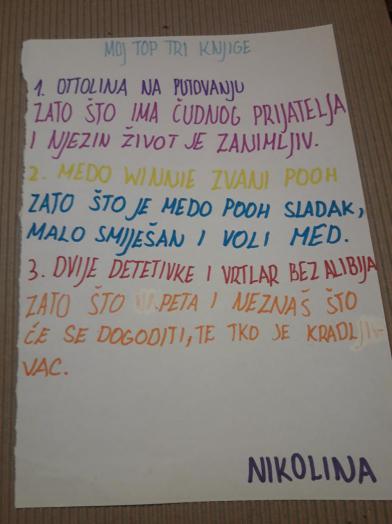 MOJ TOP TRI KNJIGE
1. OTTOLINA NA PUTOVANJU
ZATO ŠTO IMA ČUDNOG PRIJATELJA
I NJEZIN ŽIVOT JE ZANIMLJIV.
2. MEDO WINNIE ZVANI POOH
ZATO ŠTO JE MEDO POOH SLADAK,
MALO SMIJEŠAN I VOLI MED.
3. DVIJE DETETIVKE I VRTLAR BEZ ALIBIJA
ZATO ŠTO PETA I NEZNAŠ ŠTO
ĆE SE DOGODITI, TE TKO JE KRADLJI-
VAC.
NIKOLINA